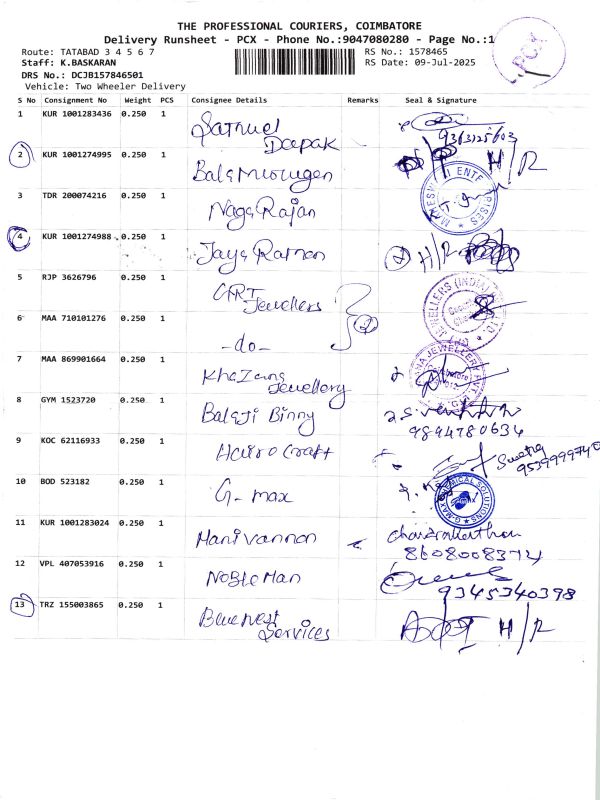 THE PROFESSIONAL COURIERS, COIMBATORE
Delivery Runsheet - PCX - Phone No.:9047080280 - Page No.:1
Route: TATABAD 3 4 5 6 7
RS No.: 1578465
Staff: K.BASKARAN
RS Date: 09-Jul-2025
DRS No.: DCJB157846501
Vehicle: Two Wheeler Delivery
PCX
S No Consignment No Weight PCS Consignee Details Remarks Seal & Signature
1 KUR 1001283436 0.250 1 Samuel Deepak
2 KUR 1001274995 0.250 1 BalaMurugen H/R
3 TDR 200074216 0.250 1 NagaRajan
MAHESWARI ENTERPRISES
4 KUR 1001274988 0.250 1 JayaRaman H/R
5 RJP 3626796 0.250 1 GRT Jewellers
JEWELLERS (INDIA)
6 MAA 710101276 0.250 1 -do-
7 MAA 869901664 0.250 1 KhaZana Jewellery
JEWELLERY
8 GYM 1523720 0.250 1 Balaji Binny
9894780634
9 KOC 62116933 0.250 1 Hairo Craft
9539999740
10 BOD 523182 0.250 1 G-max
G-MAX CHEMICAL SOLUTIONS
11 KUR 1001283024 0.250 1 Manivannan
8608008374
12 VPL 407053916 0.250 1 NobleMan
9345340398
13 TRZ 155003865 0.250 1 Bluenest Services H/R